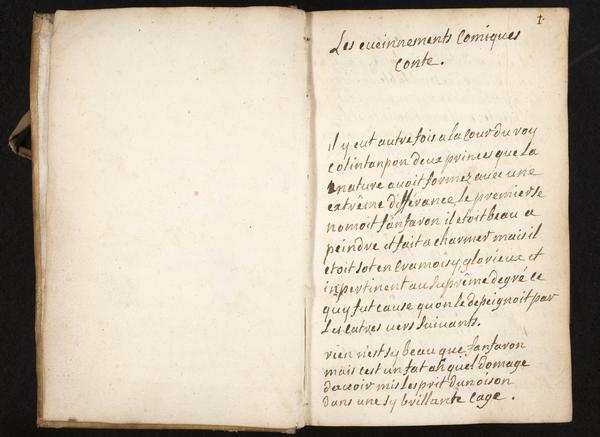 1.
Les eueinnements Comiques
conte.
il y eut autre fois a la Cour du roy
Colintanpon deux princes que La
nature auoit formez auec une
extrême différance le premier se
nomoit fanfaron il etoit beau a
peindre et fait a charmer mais il
etoit sot en Cramoisy, glorieux et
inpertinent au suprême degré ce
quy fut cause quon le depeignoit par
Les catres uers suiuants.
rien n'est sy beau que fanfaron
mais c'est un fat ah quel domage
dauoir mis lesprit dunoison
dans une sy brillante Cage.